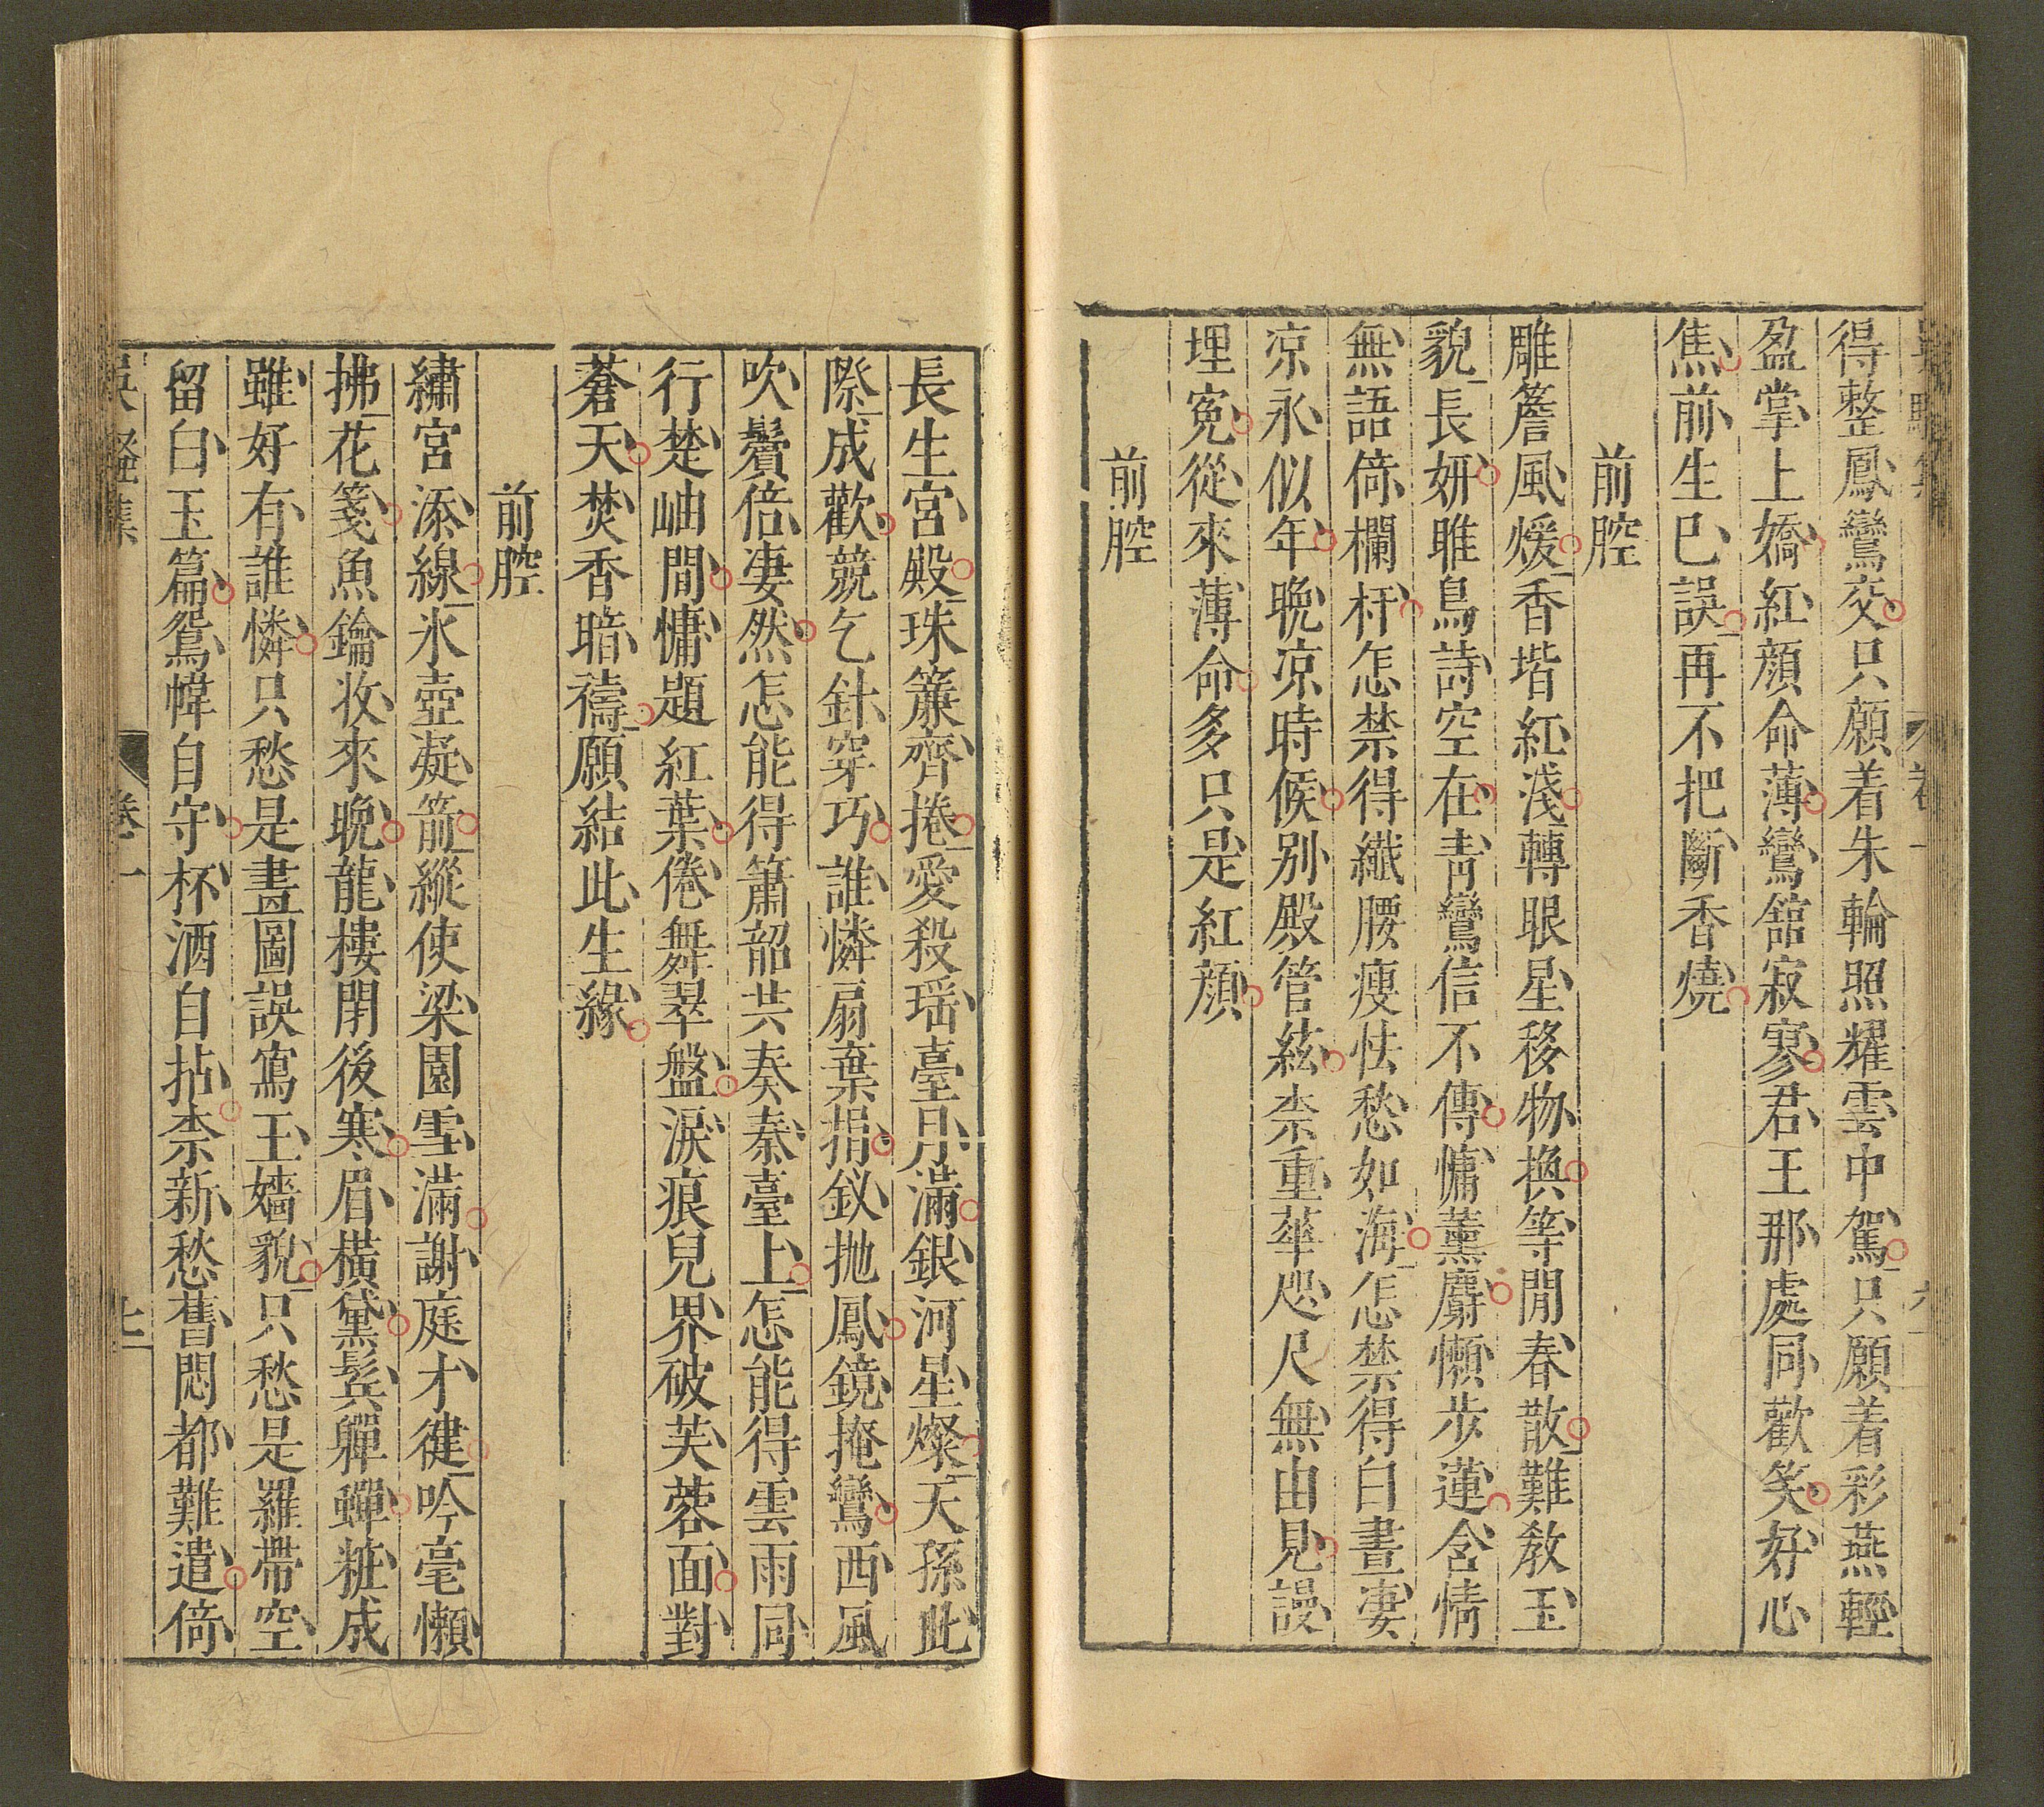 得整鳳鸞交只願着朱輪照耀雲中駕只願着彩燕輕
盈掌上嬌紅顏命薄鸞舘寂寥君王那處同歡笑好心
焦前生已誤再不把斷香燒
前腔
雕簷風煖香堦紅淺轉眼星移物換等閒春散難教玉
貌長妍雎鳥詩空在青鸞信不傳慵薰麝懶步蓮含情
無語倚欄杆怎禁得纖腰瘦怯愁如海怎禁得白晝凄
凉永似年晚凉時候別殿管絃柰重華咫尺無由見謾
埋寃從來薄命多只是紅顏
前腔
長生宮殿珠簾齊捲愛殺瑶臺月滿銀河星燦天孫此
際成歡競乞針穿巧誰憐扇棄捐釵抛鳳鏡掩鸞西風
吹鬢倍凄然怎能得簫韶共奏秦臺上怎能得雲雨同
行楚岫間慵題紅葉倦舞翠盤淚痕兒界破芙蓉面對
蒼天焚香暗禱願結此生緣
前腔
繡宮添線氷壺凝箭縱使梁園雪滿謝庭才揵吟毫懶
拂花箋魚鑰收來晚龍樓閉後寒眉橫黛鬂軃蟬粧成
雖好有誰憐只愁是畫圖誤寫王嬙貌只愁是羅帶空
留白玉篇鴛幃自守杯酒自拈柰新愁舊悶都難遣倚
卷一